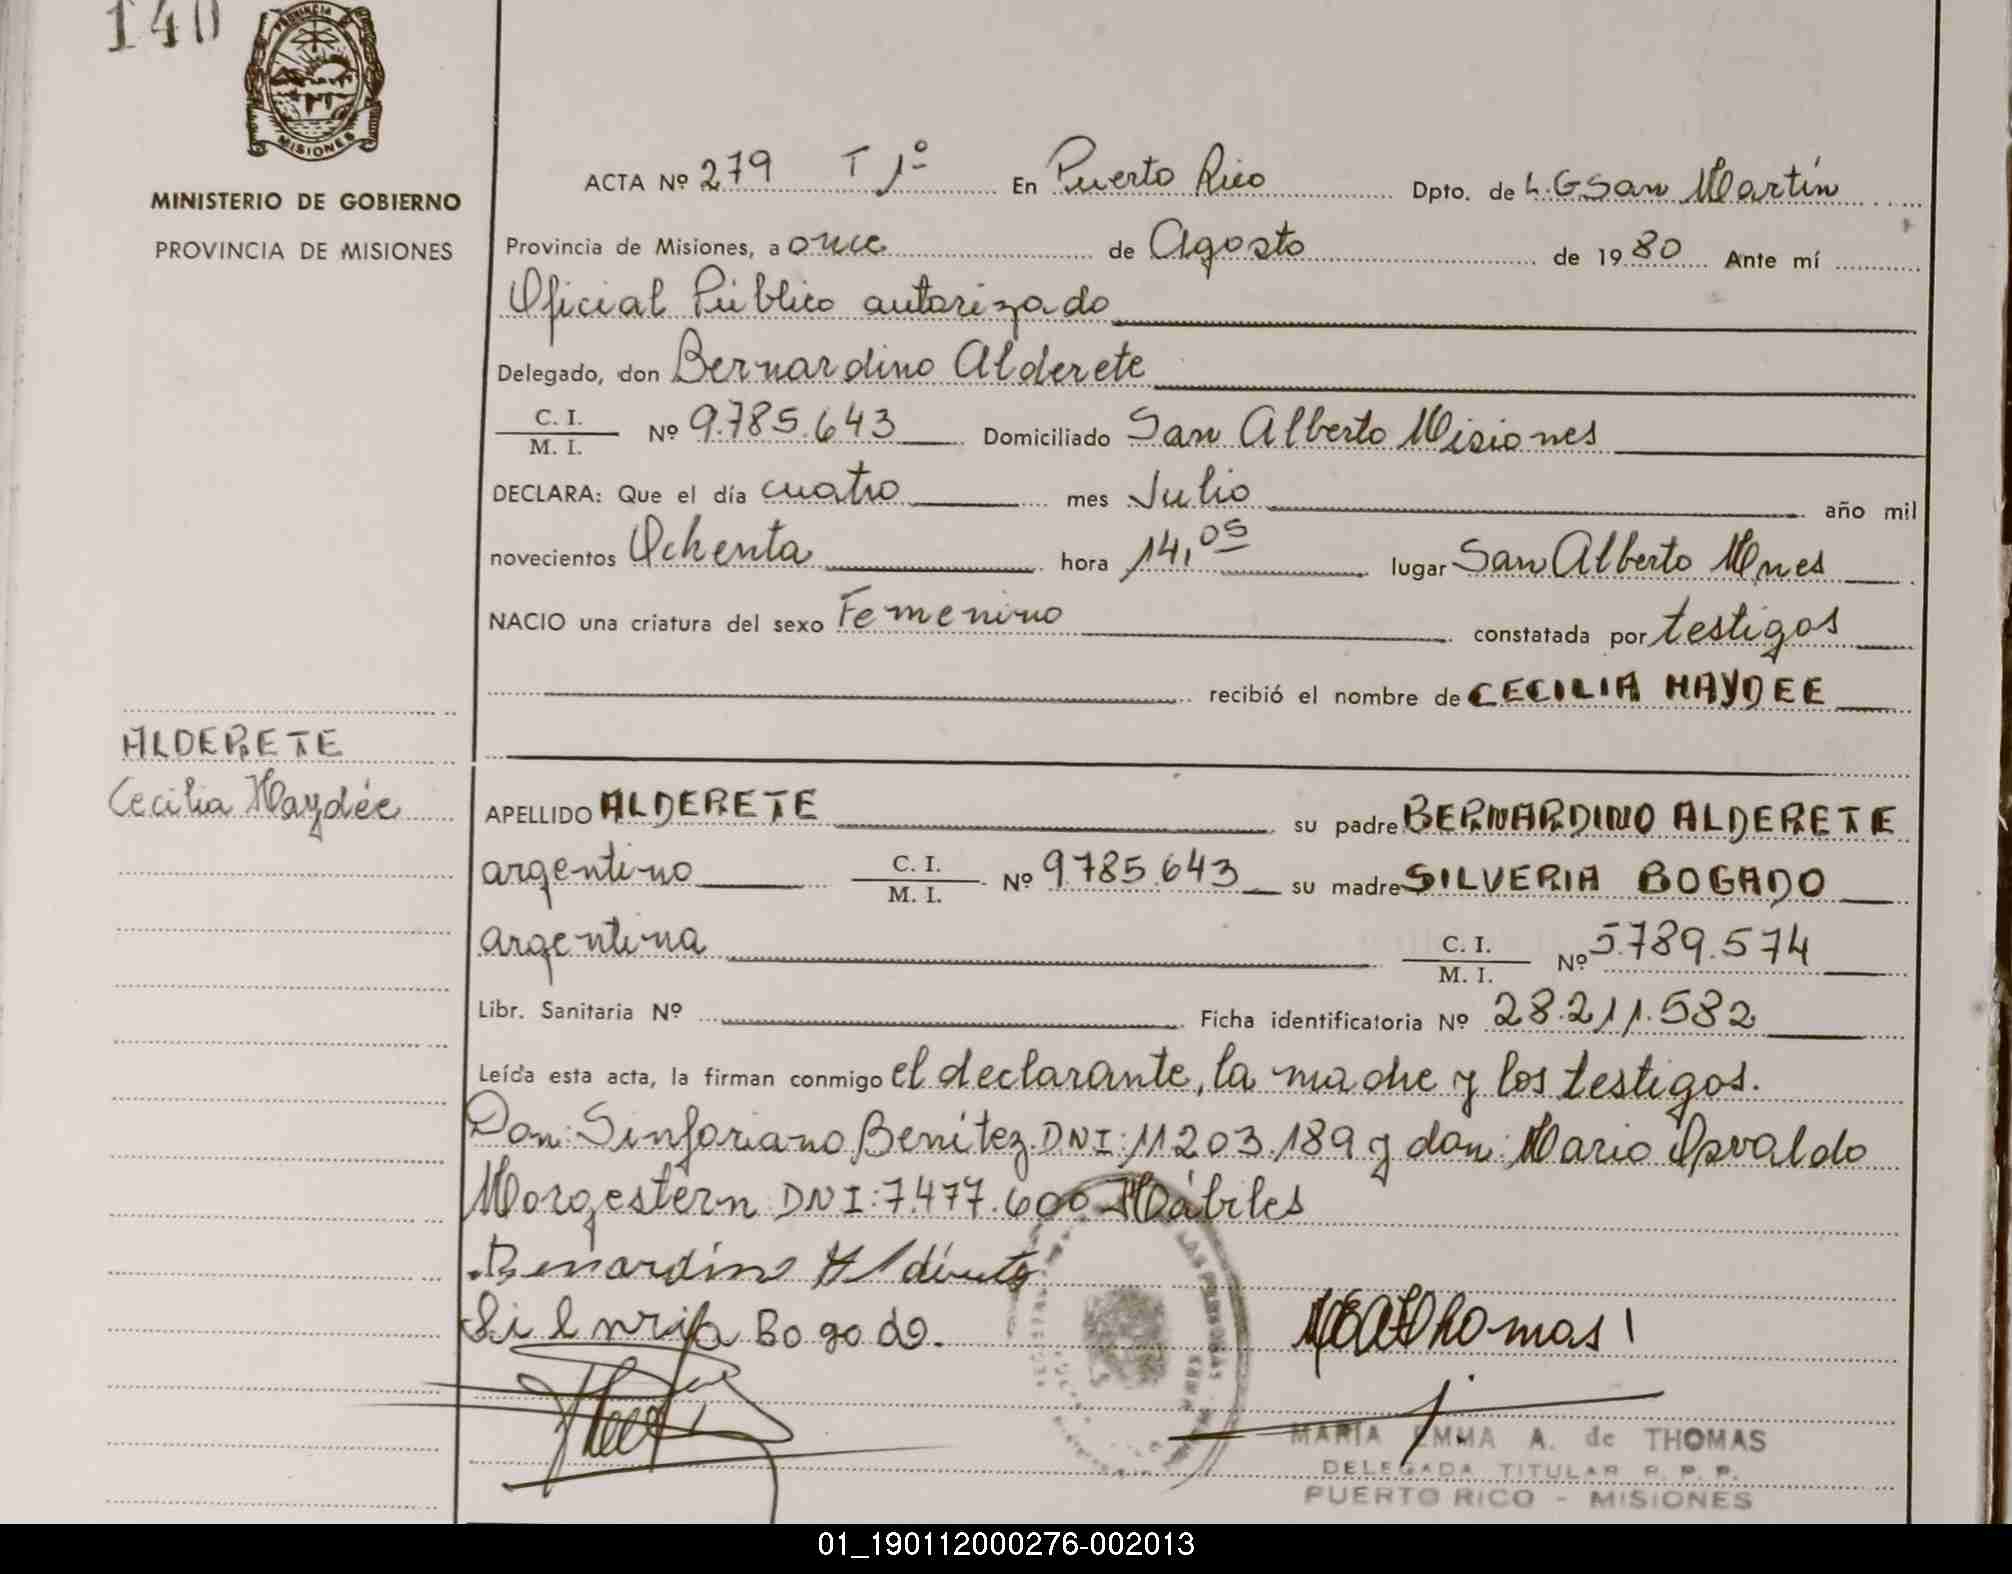 140
PROVINCIA DE
MISIONES
MINISTERIO DE GOBIERNO
PROVINCIA DE MISIONES
ACTA Nº 279 T 1º En Puerto Rico Dpto. de L.G San Martín
Provincia de Misiones, a once de Agosto de 1980 Ante mí
Oficial Público autorizado
Delegado, don Bernardino Alderete
C. I. / M. I. Nº 9.785.643 Domiciliado San Alberto Misiones
DECLARA: Que el día cuatro mes Julio año mil
novecientos Ochenta hora 14,05 lugar San Alberto Mnes
NACIO una criatura del sexo Femenino constatada por testigos
recibió el nombre de CECILIA HAYDEE
ALDERETE
Cecilia Haydée
APELLIDO ALDERETE su padre BERNARDINO ALDERETE
argentino C. I. / M. I. Nº 9.785.643 su madre SILVERIA BOGADO
argentina C. I. / M. I. Nº 5.789.574
Libr. Sanitaria Nº Ficha identificatoria Nº 28.211.582
Leída esta acta, la firman conmigo el declarante, la madre y los testigos.
Don: Sinforiano Benítez DNI: 11.203.189 y don: Mario Osvaldo
Morgestern DNI: 7.477.600 Hábiles
Bernardino Alderete
Silveria Bogado.
MEAdThomas
LAS PERSONAS
MARIA EMMA A. de THOMAS
DELEGADA TITULAR R. P. P.
PUERTO RICO - MISIONES
01_190112000276-002013